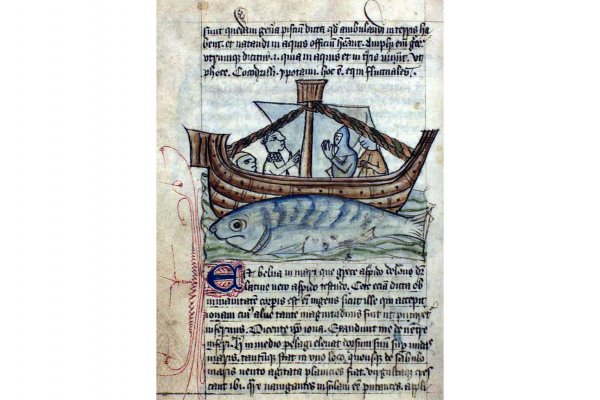 sunt quedam gen̄a pisciū dicta qđ ambulandi in terris ha
bent. et natandi in aquis officiū hēant. Amphi em̄ gre
utrumque dicitur .i. quia in aquis et in tr̄is uiuūt. Vt
phoce. Cocodrilli. ypotani. hoc ē. equi fluctuales.
Est belua in mari que grece aspido delone dr̄
latine uero aspido testudo. Cete eciā dicta ob
inmanitatē corpis est eī ingens sicut ille qui excepit
ionam cuiꝰ aluꝰ tante magnitudinis fuit ut putaret
infernus. Dicente ip̄o iona. Exaudiuit me de uentre
inferi. H̄ in medio pelagi eleuat dorsum suū sup̄ undas
maris. tantūque stat in uno loco. quousque de sabulo
maris uento agitata planicies fiat. uirgultaque cres
cant ibi. Qr̄e nauigantes insulam eē putantes. appli